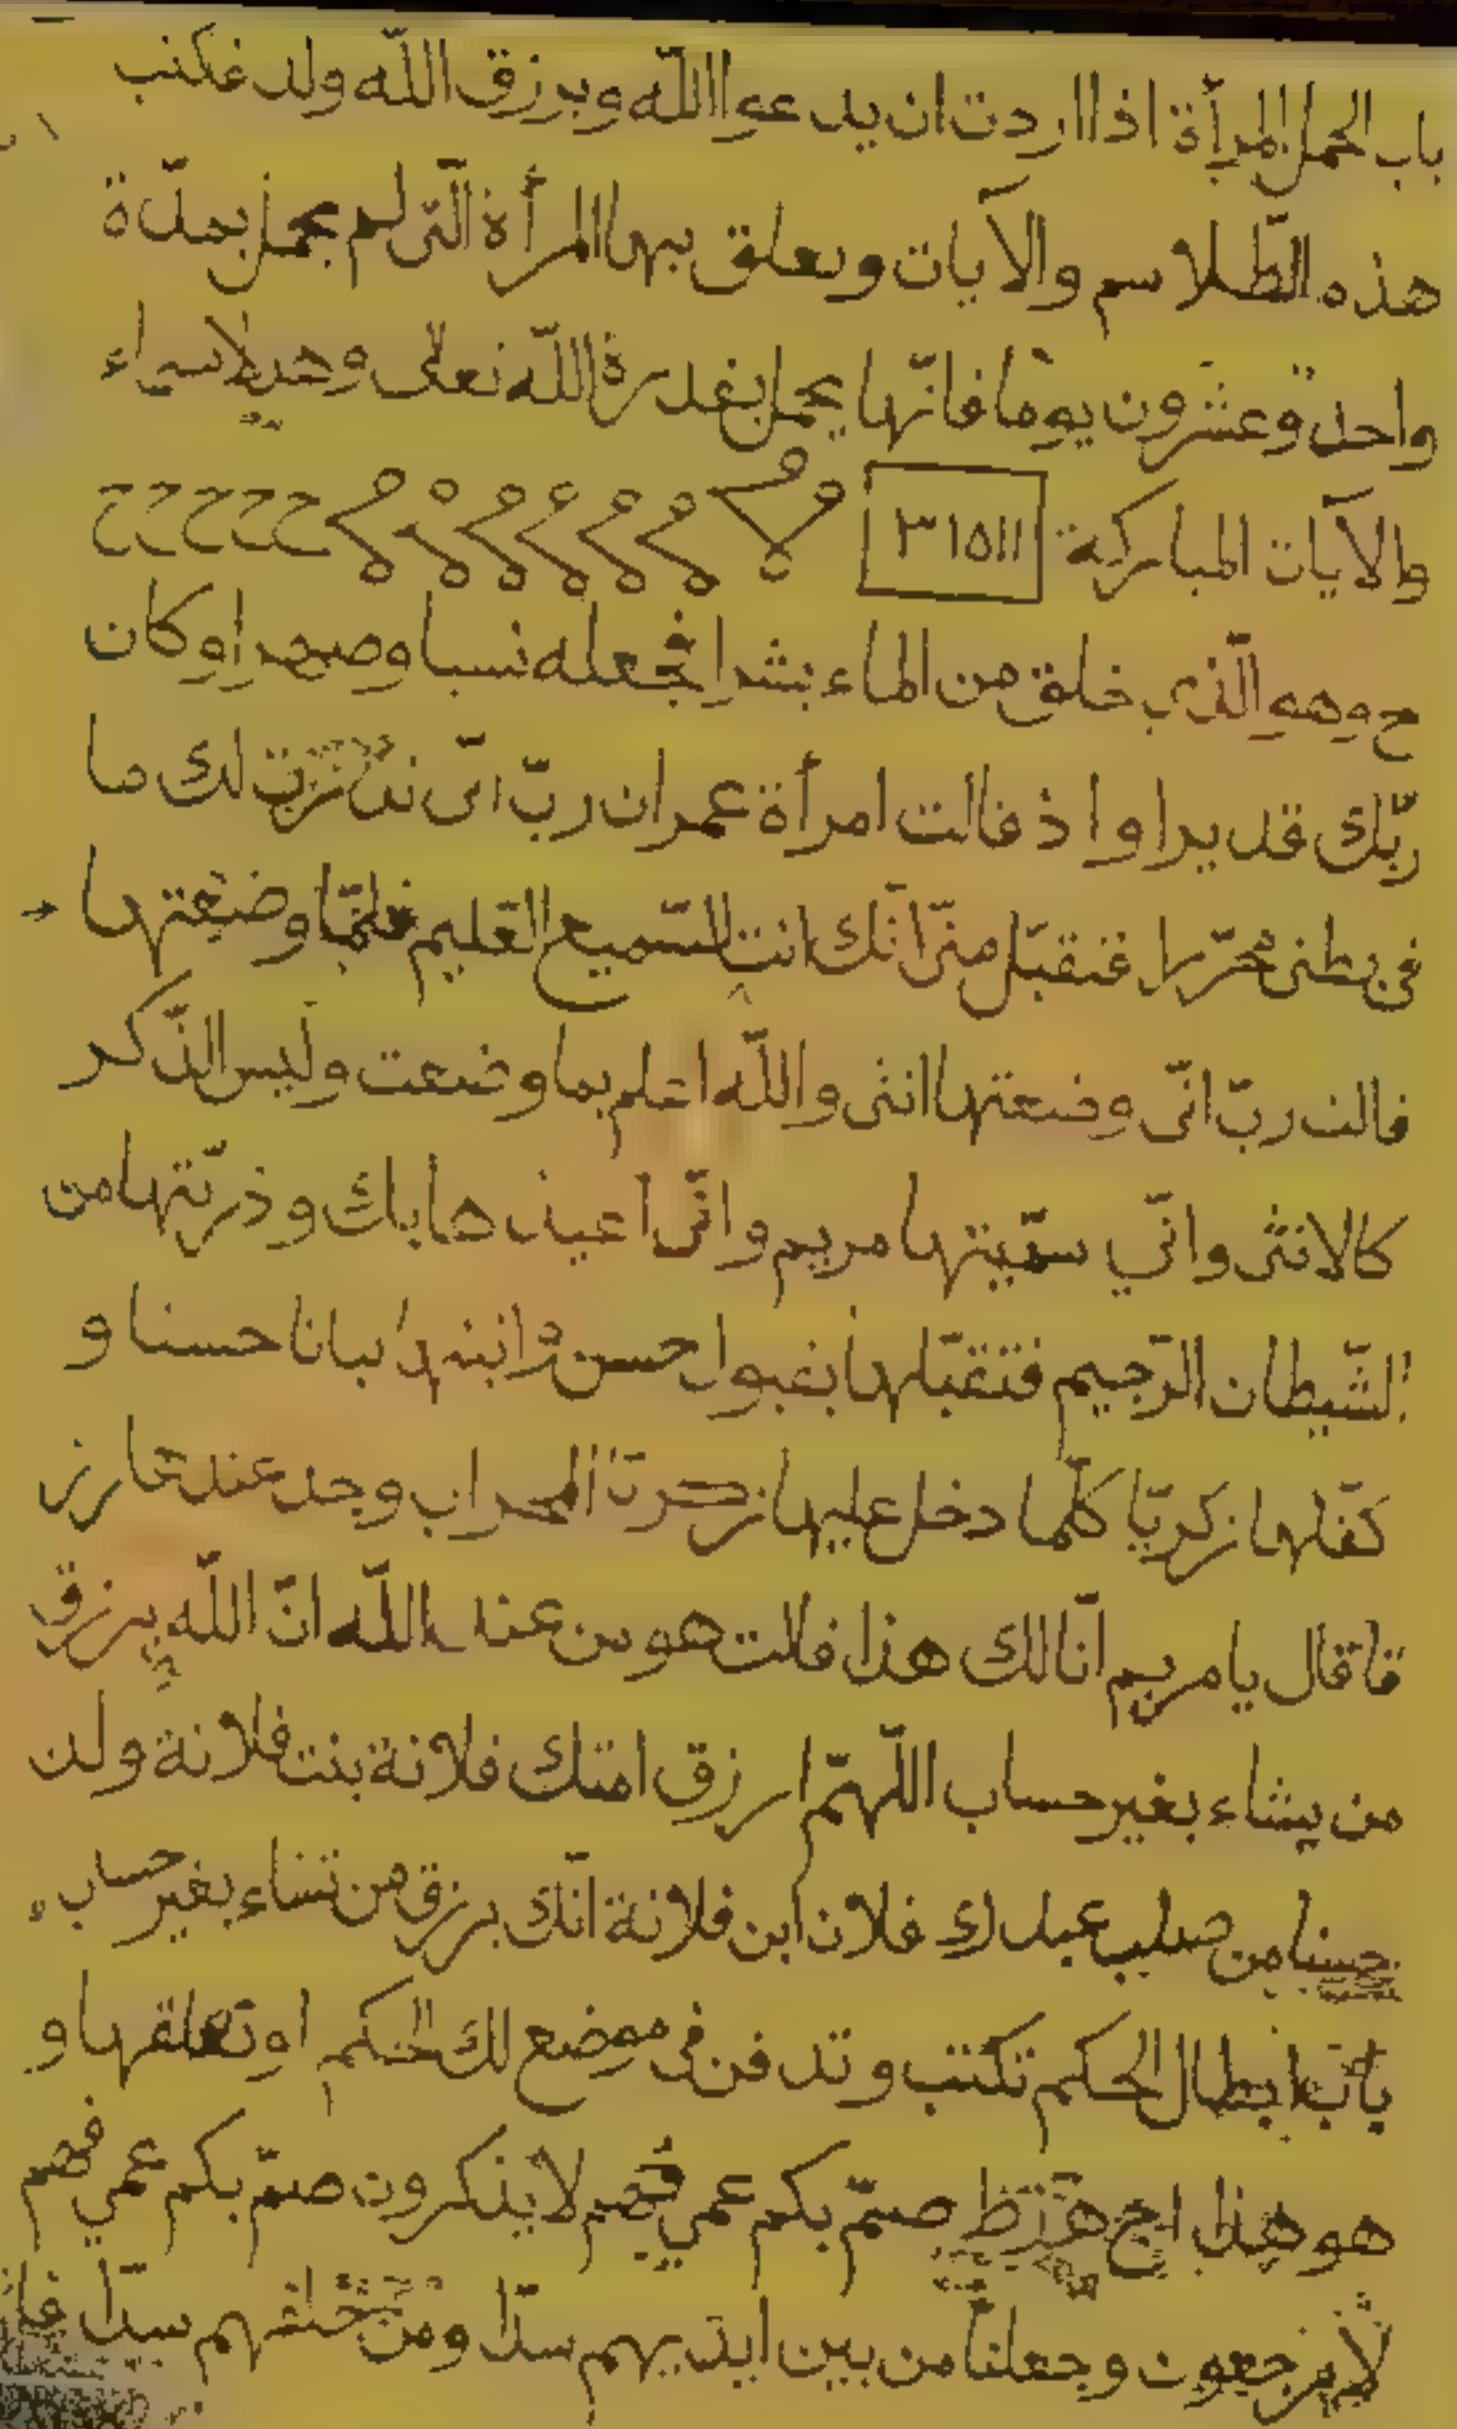 باب الحمل المرأة اذا اردت ان يدعوا الله ويرزق الله ولد فكتب
هذه الطّلاسم والآيات وتعلق بها المرأة الّتى لم تحمل بعدّة
واحد وعشرون يوما فانّها يحمل بقدرة الله تعلى وهذ لاسماء
والآيات المباركة ٣١٥١١ ححححح
ح وهو الّذي خلق من الماء بشرا فجعله نسبا وصهرا وكان
ربّك قديرا واذ قالت امرأة عمران ربّ انّى نذرت لك ما
فى بطنى محرّرا فتقبّل منّى انّك انت السّميع العليم فلمّا وضعتها
قالت ربّ انّى وضعتها انثى والله اعلم بما وضعت وليس الذّكر
كالانثى وانّي سمّيتها مريم وانّى اعيذ هابك وذرّيّتها من
الشّيطان الرّجيم فتقبّلها بقبول حسن وانبتها نباتا حسنا و
كفّلها زكريّا كلّما دخل عليها زكريا المحراب وجد عندها رز
قا قال يا مريم انّا لك هذا قالت هو من عند الله انّ الله يرزق
من يشاء بغير حساب اللّهمّ ارزق امتك فلانة بنت فلانة ولد
حسنا من صلب عبدك فلان ابن فلانة انّك يرزق من تشاء بغير حساب
باب ابطال الحكم تكتب وتدفن فى موضع لك الحكم او تعلقها و
هو هذا صمّ بكم عمي فهم لا يذكرون صمّ بكم عمي فهم
لا يرجعون وجعلنا من بين ايديهم سدّا ومن خلفهم سدّا